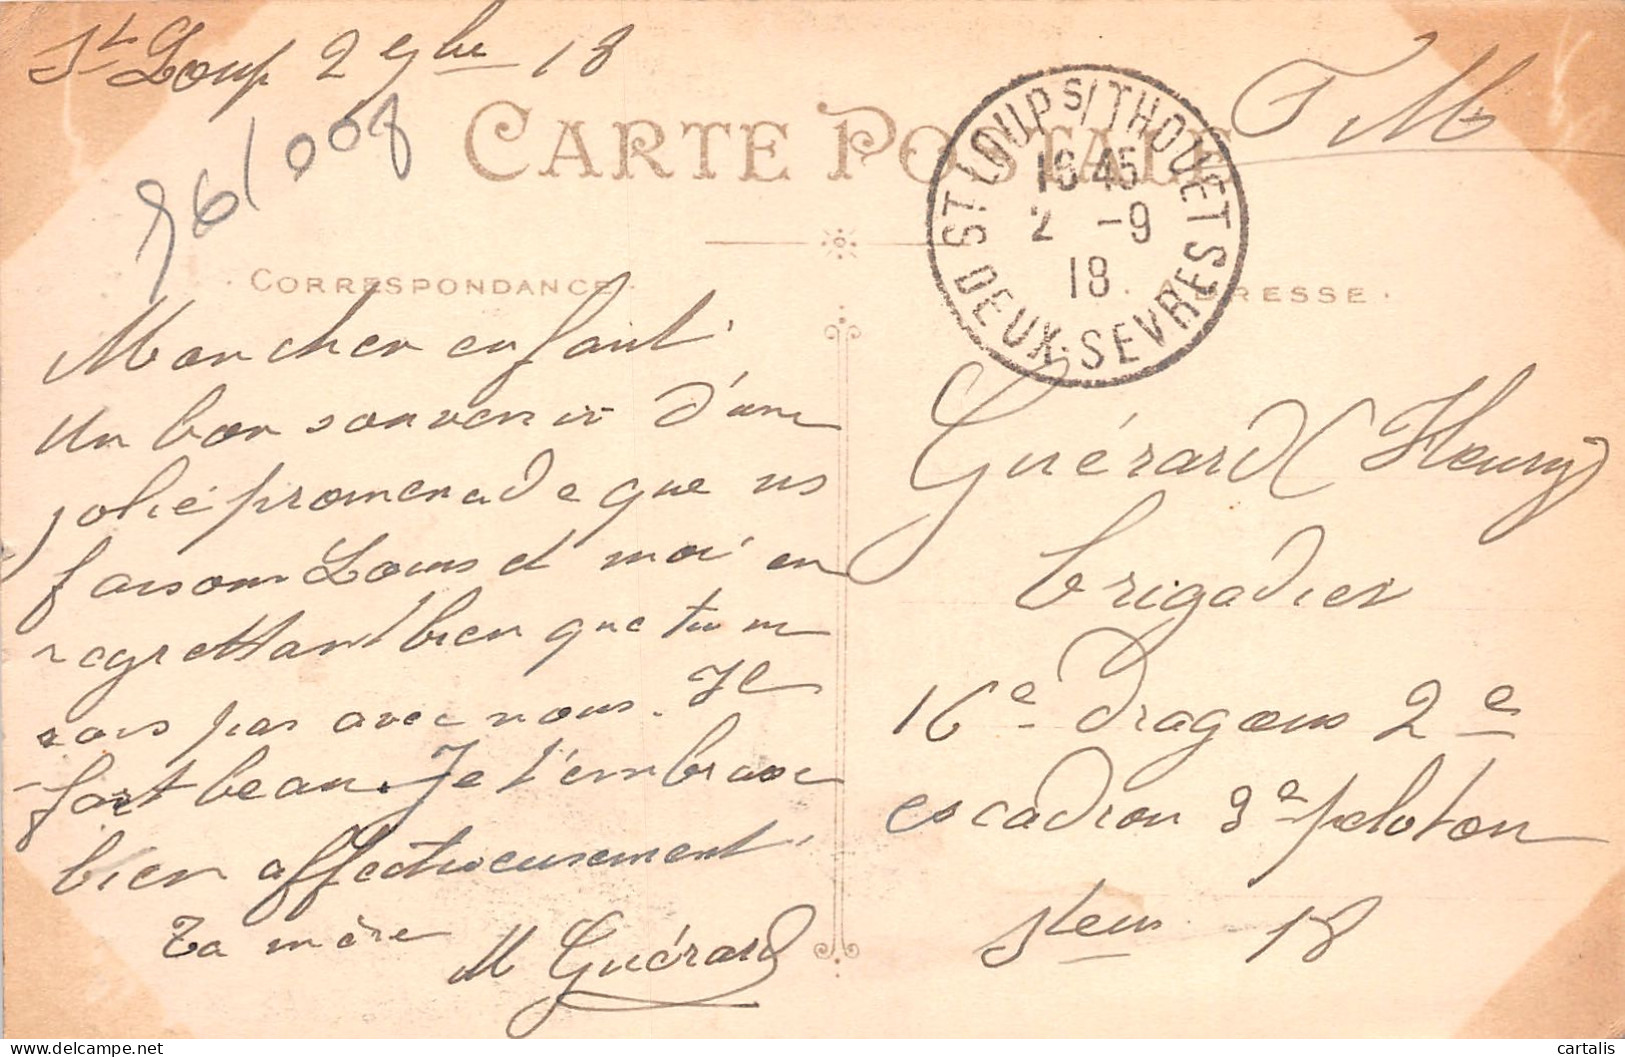 St Loup 2 9bre 18
96/008
F M
CARTE POSTALE
ST LOUP S/THOUET
16 45
2 -9
18
DEUX-SEVRES
CORRESPONDANCE
ADRESSE
Mon cher enfant
Un bon souvenir d'une
jolie promenade que ns
faisons Louis et moi en
regrettant bien que tu ne
sois pas avec nous. Il
fait beau. Je t'embrasse
bien affectueusement
Ta mère
M Guérard
Guérard (Fleury)
brigadier
16e dragons 2e
escadron 3e peloton
Steur 18
cartalis